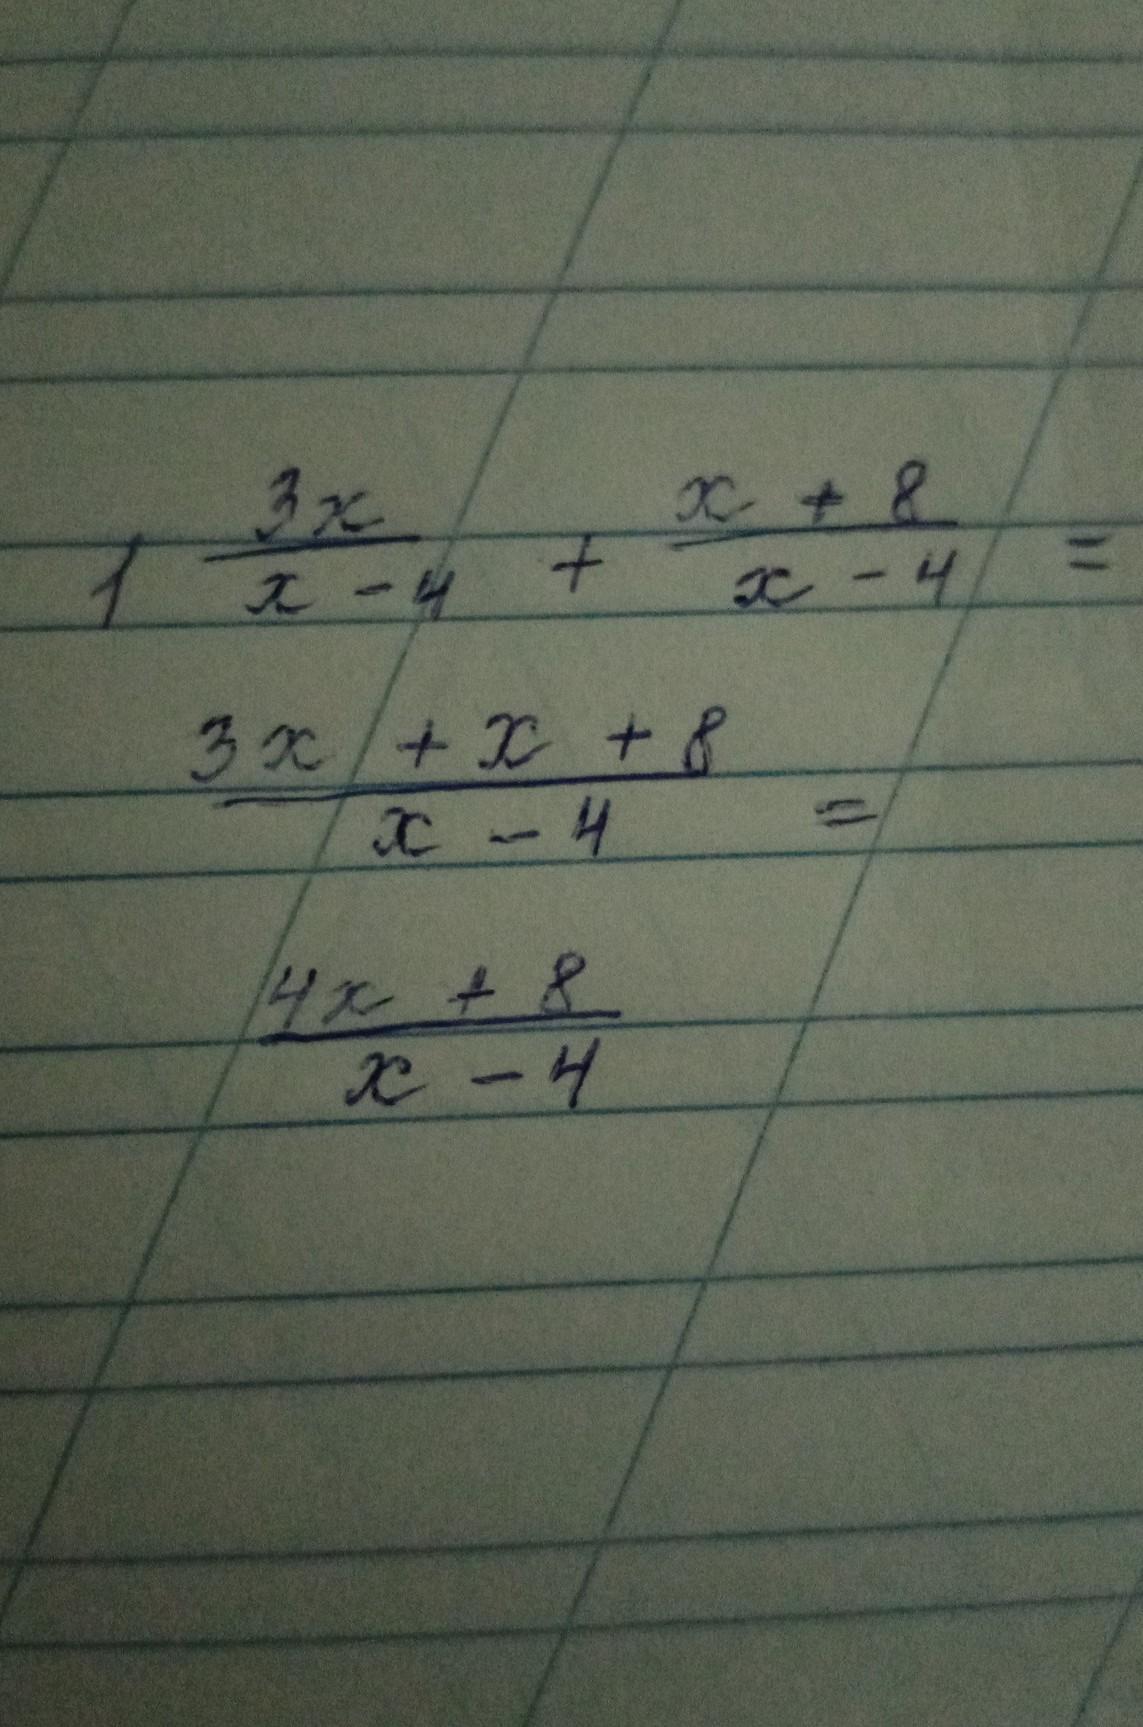 1 3x/(x - 4) + (x + 8)/(x - 4) =
(3x + x + 8)/(x - 4) =
(4x + 8)/(x - 4)